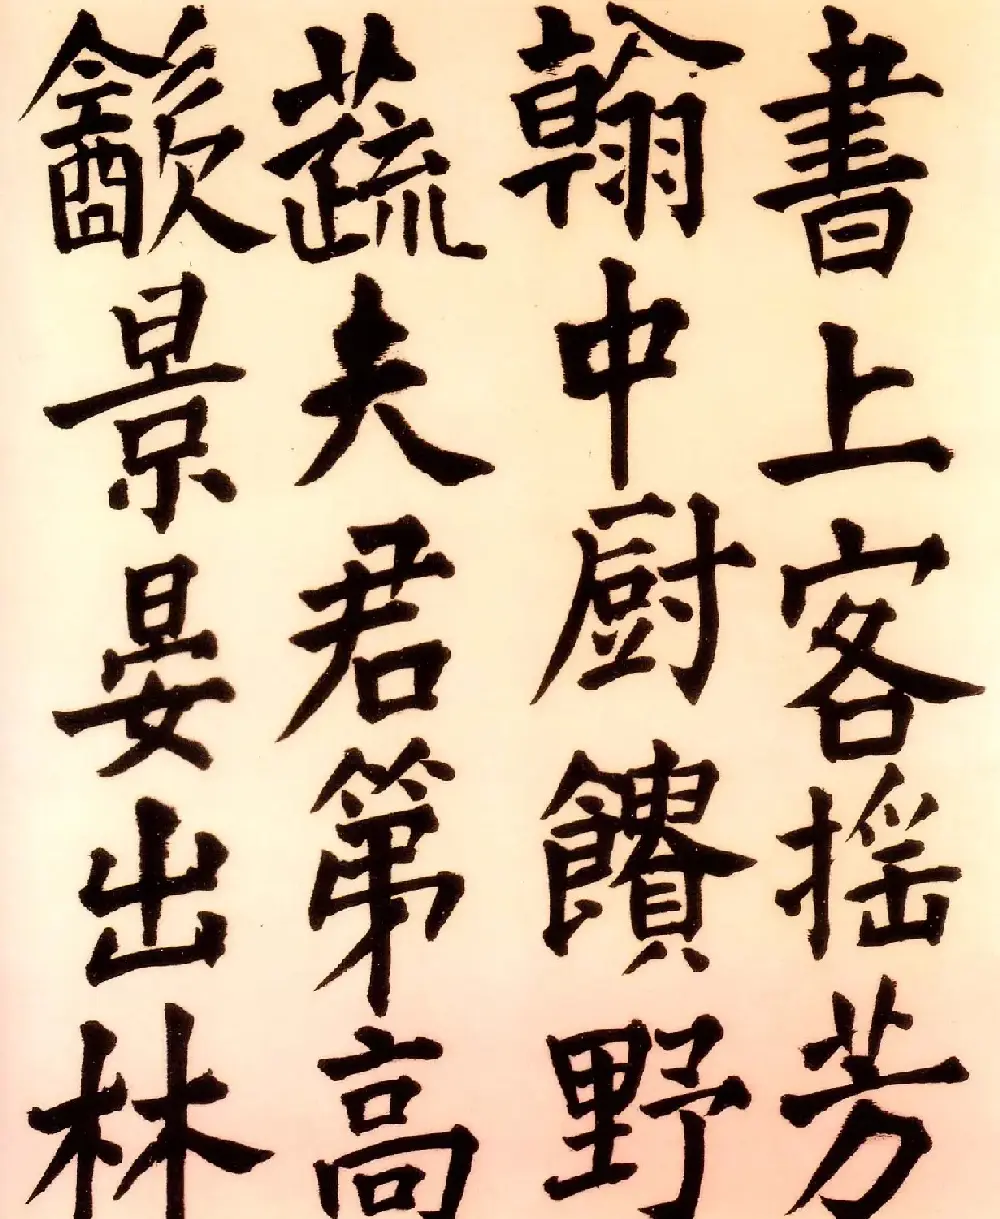 書上客搖芳
翰中厨饋野
蔬夫君第高
飲景晏出林